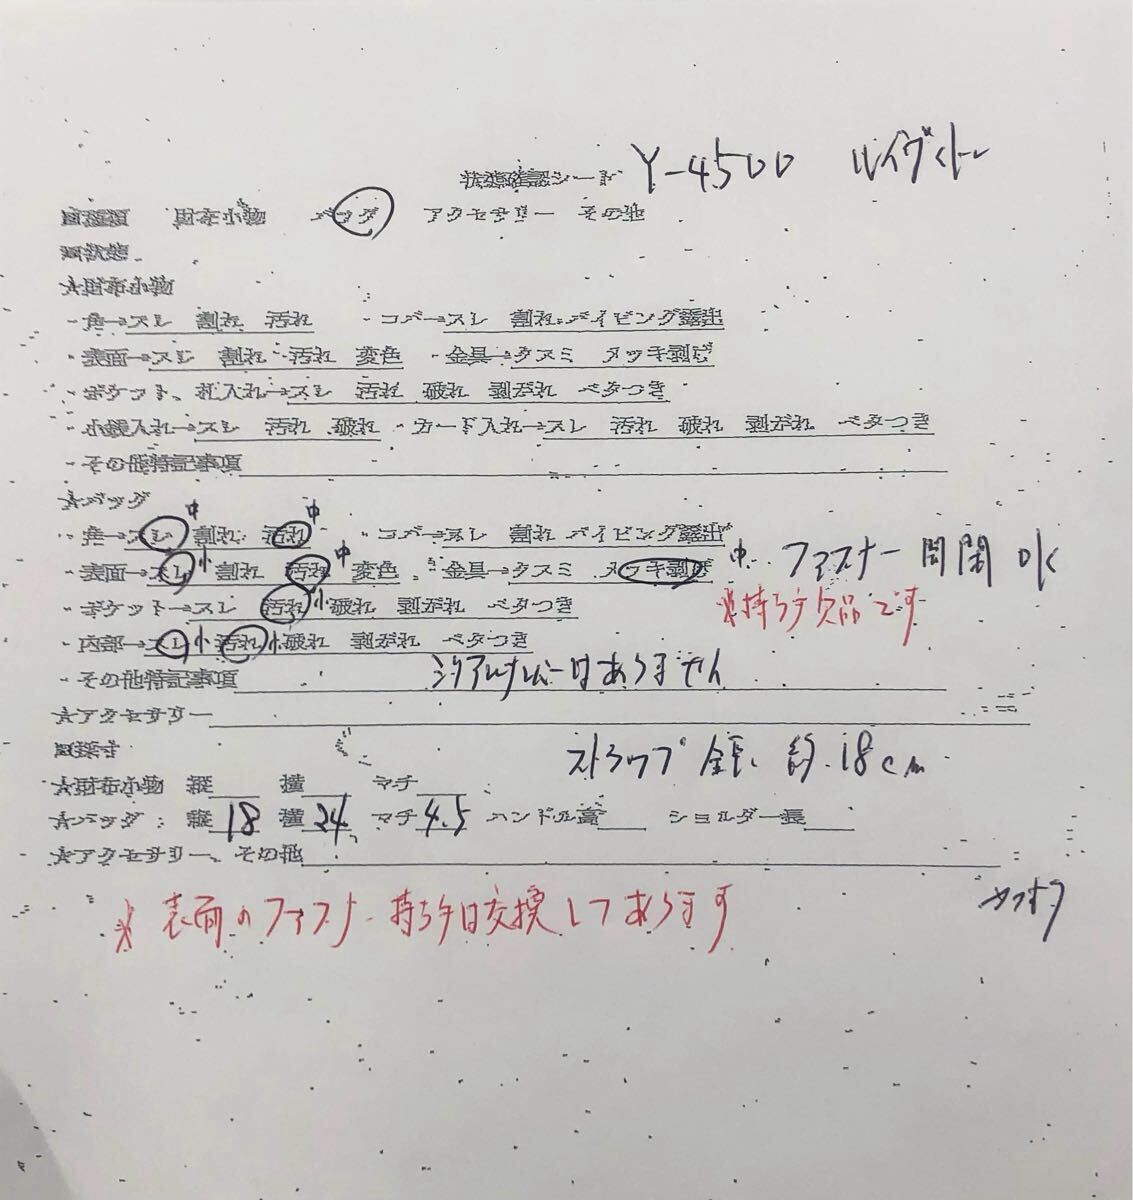 状態確認シート Y-4500 ルイヴィトン
財布小物 バッグ アクセサリー その他
■状態
★財布小物
・角→スレ 割れ 汚れ ・コバ→スレ 割れ パイピング露出
・表面→スレ 割れ 汚れ 変色 ・金具→クスミ メッキ剥げ
・ポケット、札入れ→スレ 汚れ 破れ 剥がれ ベタつき
・小銭入れ→スレ 汚れ 破れ ・カード入れ→スレ 汚れ 破れ 剥がれ ベタつき
・その他特記事項
★バッグ
・角→スレ中 割れ 汚れ中 ・コバ→スレ 割れ パイピング露出
・表面→スレ小 割れ 汚れ中 変色 ・金具→クスミ メッキ剥げ中 ファスナー開閉OK
・ポケット→スレ 汚れ小 破れ 剥がれ ベタつき ※持ち手欠品です
・内部→スレ小 汚れ小 破れ 剥がれ ベタつき
・その他特記事項 シリアルナンバーはありません
★アクセサリー
■採寸 ストラップ全長 約18cm
★財布小物 縦 横 マチ
★バッグ：縦18 横24 マチ4.5 ハンドル高 ショルダー長
★アクセサリー、その他
※表面のファスナー持ち手は交換してあります